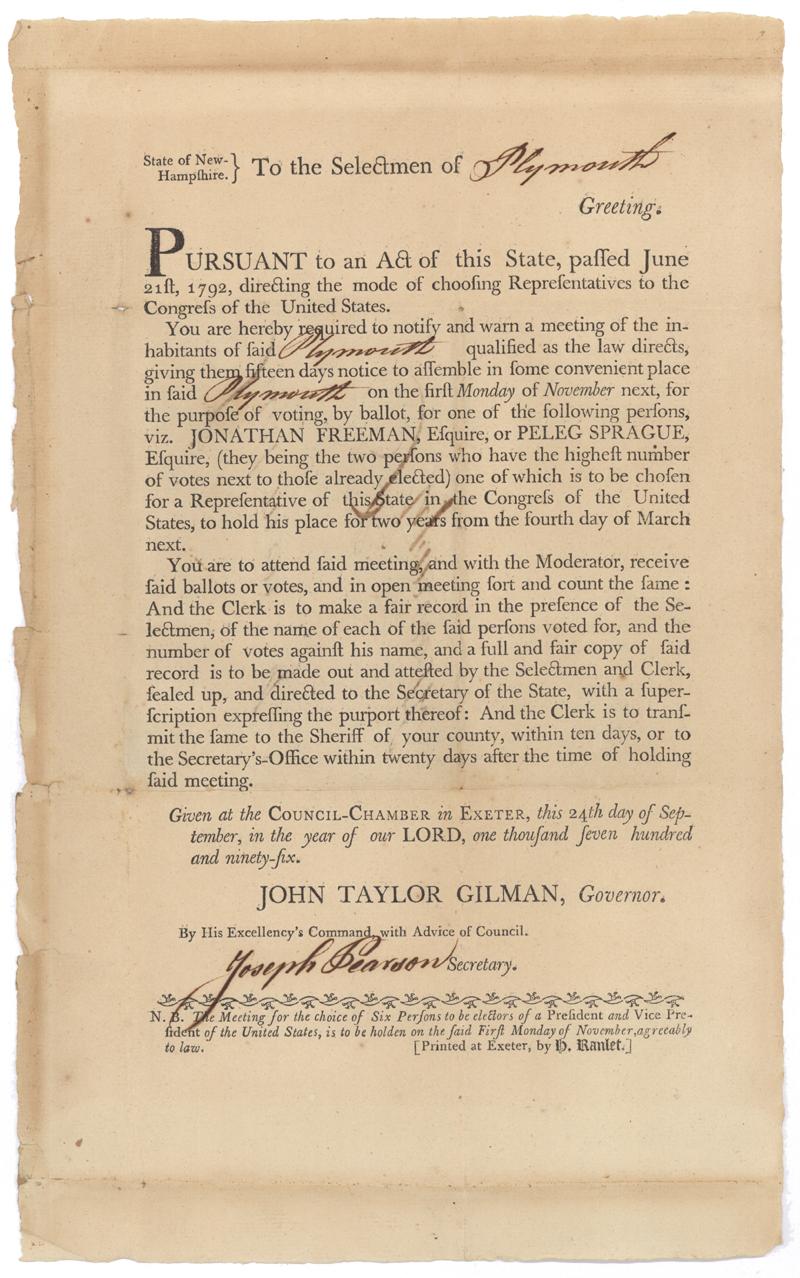 State of New-
Hampſhire. } To the Selectmen of Plymouth
Greeting.
PURSUANT to an Act of this State, paſſed June
21ſt, 1792, directing the mode of chooſing Repreſentatives to the
Congreſs of the United States.
You are hereby required to notify and warn a meeting of the in-
habitants of ſaid Plymouth qualified as the law directs,
giving them fifteen days notice to aſſemble in ſome convenient place
in ſaid Plymouth on the firſt Monday of November next, for
the purpoſe of voting, by ballot, for one of the following perſons,
viz. JONATHAN FREEMAN, Eſquire, or PELEG SPRAGUE,
Eſquire, (they being the two perſons who have the higheſt number
of votes next to thoſe already elected) one of which is to be choſen
for a Repreſentative of this State in the Congreſs of the United
States, to hold his place for two years from the fourth day of March
next.
You are to attend ſaid meeting, and with the Moderator, receive
ſaid ballots or votes, and in open meeting ſort and count the ſame :
And the Clerk is to make a fair record in the preſence of the Se-
lectmen, of the name of each of the ſaid perſons voted for, and the
number of votes againſt his name, and a full and fair copy of ſaid
record is to be made out and atteſted by the Selectmen and Clerk,
ſealed up, and directed to the Secretary of the State, with a ſuper-
ſcription expreſſing the purport thereof: And the Clerk is to tranſ-
mit the ſame to the Sheriff of your county, within ten days, or to
the Secretary's-Office within twenty days after the time of holding
ſaid meeting.
Given at the COUNCIL-CHAMBER in EXETER, this 24th day of Sep-
tember, in the year of our LORD, one thouſand ſeven hundred
and ninety-ſix.
JOHN TAYLOR GILMAN, Governor.
By His Excellency's Command, with Advice of Council.
Joseph Pearson Secretary.
N. B. The Meeting for the choice of Six Perſons to be electors of a Preſident and Vice Pre-
ſident of the United States, is to be holden on the ſaid Firſt Monday of November, agreeably
to law. [Printed at Exeter, by H. Ranlet.]